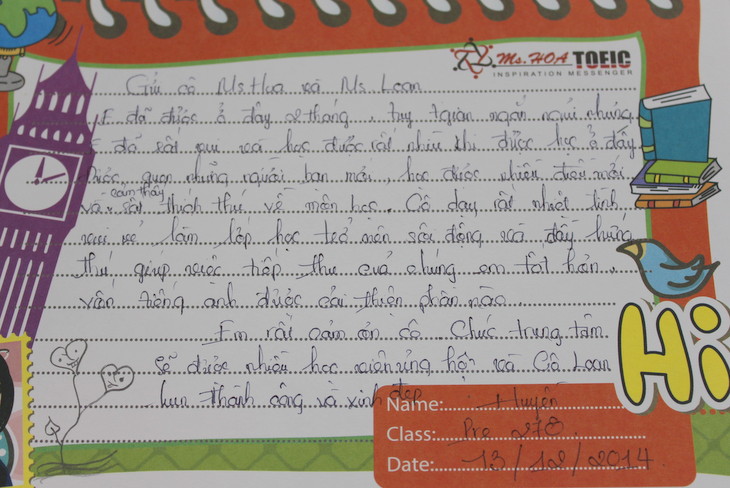 Ms. HOA TOEIC
INSPIRATION MESSENGER
Gửi cô Ms Hoa và Ms. Loan
E đã được ở đây 2 tháng, tuy tgian ngắn ngủi nhưng
E đã rất vui và học được rất nhiều khi được học ở đây
Được quen những người bạn mới, học được nhiều điều mới
và cảm thấy rất thích thú về môn học. Cô dạy rất nhiệt tình
vui vẻ làm lớp học trở nên sôi động và đầy hứng
thú giúp việc tiếp thu của chúng em tốt hơn,
vốn tiếng anh được cải thiện phần nào.
Em rất cảm ơn cô. Chúc trung tâm
sẽ được nhiều học viên ủng hộ và Cô Loan
luôn thành công và xinh đẹp
Hi
Name: Huyền
Class: Pre 278
Date: 13/12/2014